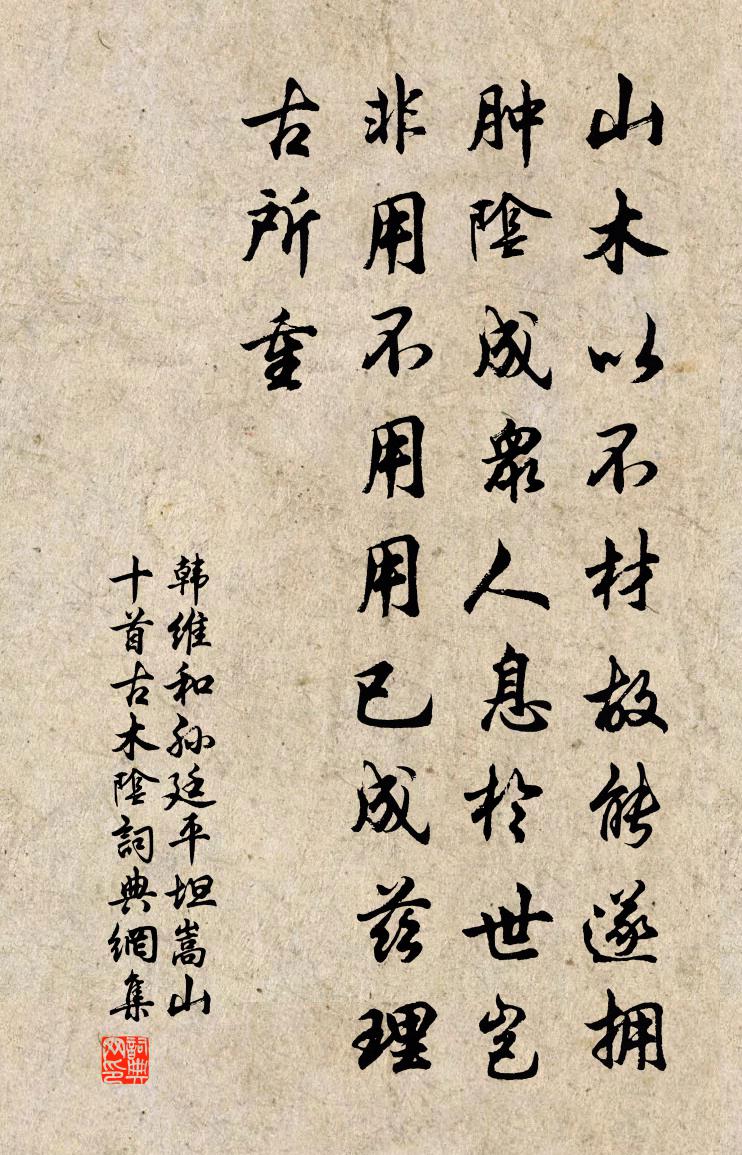 山木以不材故能遂拥
肿陰成眾人息於世岂
非用不用用已成茲理
古所重
韩维和孙廷平坦嵩山
十首古木陰詞典網集
詞典
网印